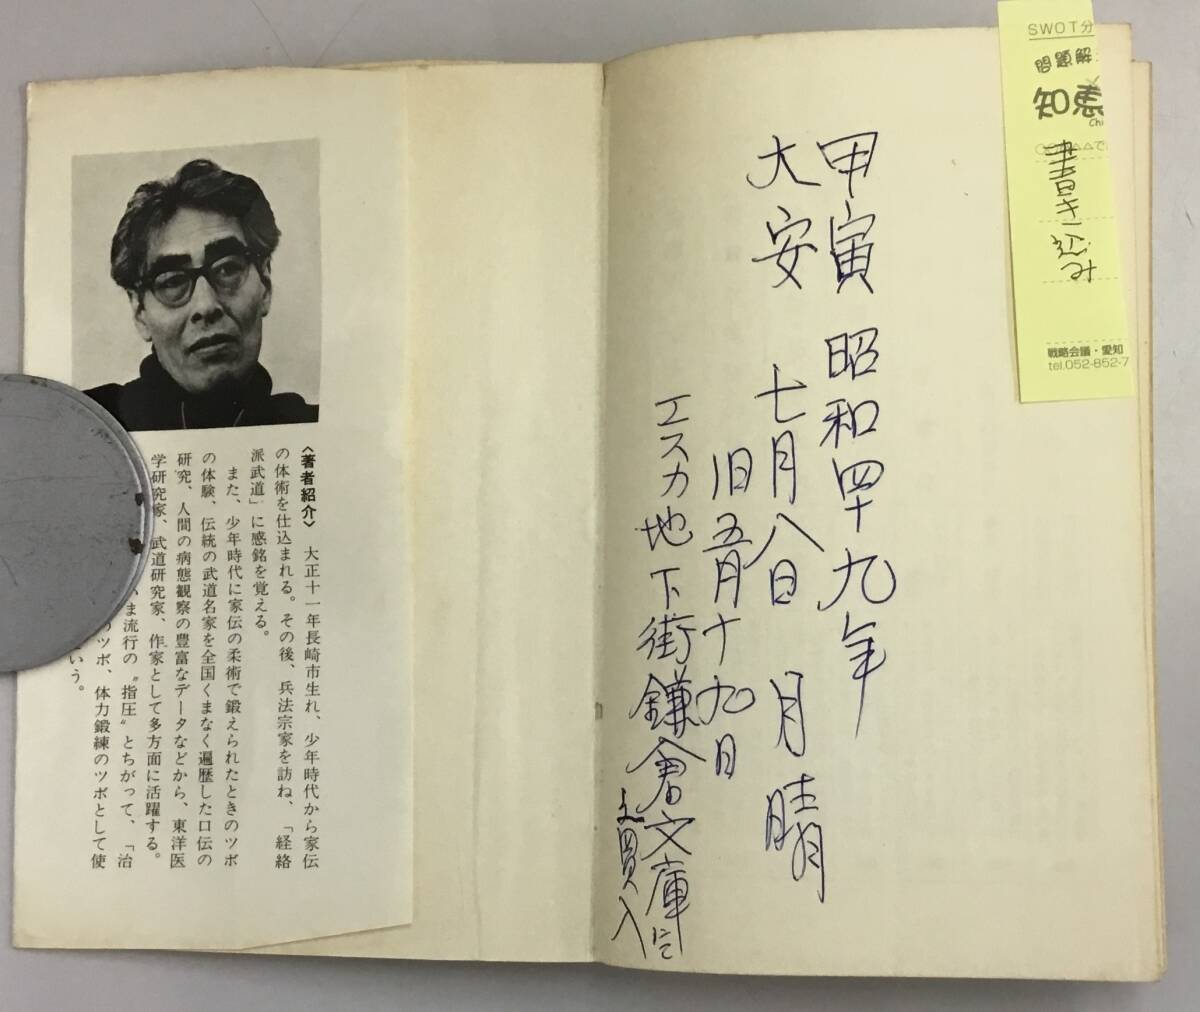 SWOT分
問題解
知恵
Chi
書き込み
戦略会議・愛知
tel.052-852-7
甲寅 昭和四十九年
大安 七月八日 月晴
旧五月十九日
エスカ地下街鎌倉文庫にて
買入
〈著者紹介〉 大正十一年長崎市生れ、少年時代から家伝
の体術を仕込まれる。その後、兵法宗家を訪ね、「経絡
派武道」に感銘を覚える。
また、少年時代に家伝の柔術で鍛えられたときのツボ
の体験、伝統の武道名家を全国くまなく遍歴した口伝の
研究、人間の病態観察の豊富なデータなどから、東洋医
学研究家、武道研究家、作家として多方面に活躍する。
ま流行の〝指圧〟とちがって、「治
のツボ、体力鍛練のツボとして使
いう。